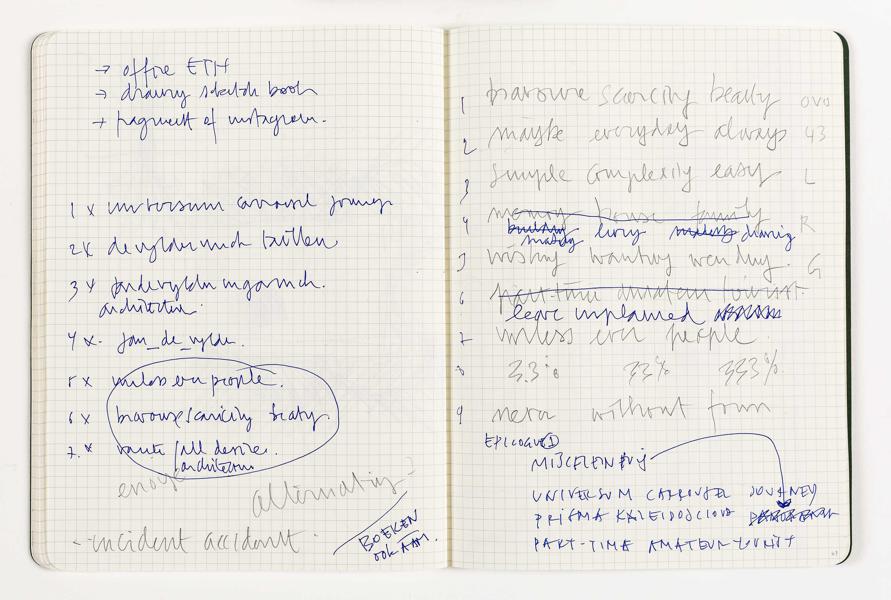 → office ETH
→ drawing sketch book
→ fragment of instagram.
1 x universum carrousel journey
2 x devylder vinck taillieu
3 x jandevylderingevinck.
architecten.
4 x jan_de_vylder.
5 x unless ever people.
6 x baroque/scarcity/beauty.
7. x /all desire.
architecture
enough
alternating
- incident accident -
BOEKEN
OOK AAN.
1 baroque scarcity beauty OVO
2 maybe everyday always 43
3 simple complexity easy L
4 memory house family R
building living making drawing
5 wishing wanting wending. G
6 part-time amateur tourist.
leave unplanned
7 unless ever people
8 3.3% 33% 333%
9 never without form
EPILOGUE 1
UNIVERSUM CARROUSEL JOURNEY
PRISMA KALEIDOSCOOP
PART-TIME AMATEUR TOURIST